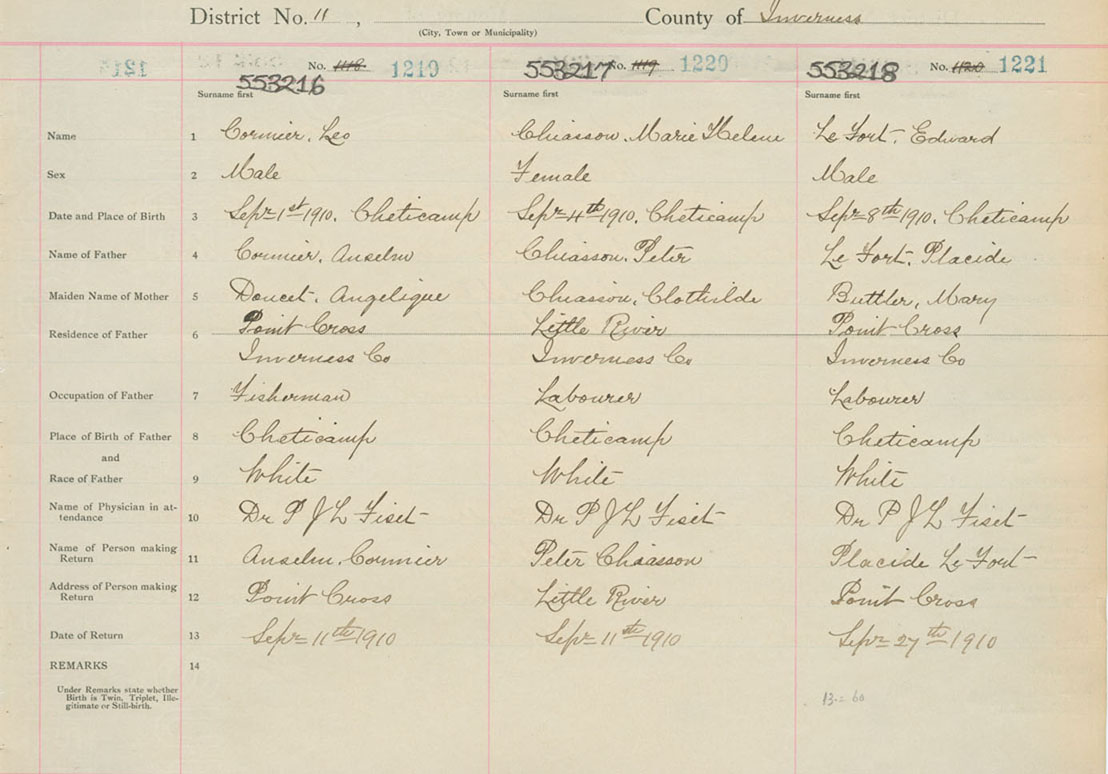 District No. 11 , County of Inverness
(City, Town or Municipality)
No. 1118 1219 No. 1119 1220 No. 1120 1221
553216 553217 553218
Surname first Surname first Surname first
Name 1 Cormier, Leo Chiasson, Marie Helene Le Fort, Edward
Sex 2 Male Female Male
Date and Place of Birth 3 Sepr 1st 1910, Cheticamp Sepr 4th 1910, Cheticamp Sepr 8th 1910, Cheticamp
Name of Father 4 Cormier, Anselm Chiasson, Peter Le Fort, Placide
Maiden Name of Mother 5 Doucet, Angelique Chiasson, Clothilde Buttler, Mary
Residence of Father 6 Point Cross Little River Point Cross
Inverness Co Inverness Co Inverness Co
Occupation of Father 7 Fisherman Labourer Labourer
Place of Birth of Father 8 Cheticamp Cheticamp Cheticamp
and
Race of Father 9 White White White
Name of Physician in at-
tendance 10 Dr P J L Fiset Dr P J L Fiset Dr P J L Fiset
Name of Person making
Return 11 Anselm Cormier Peter Chiasson Placide Le Fort
Address of Person making
Return 12 Point Cross Little River Point Cross
Date of Return 13 Sepr 11th 1910 Sepr 11th 1910 Sepr 27th 1910
REMARKS 14
Under Remarks state whether
Birth is Twin, Triplet, Ille-
gitimate or Still-birth.